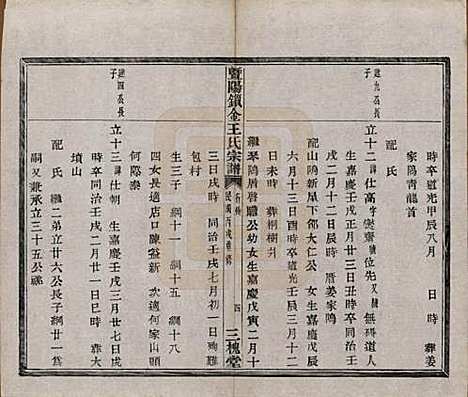 時卒道光甲辰八月　日時葬姜
家陽靑龍首
進九公長
子
立十二諱仕高字燮齋號位先又號無礙道人
生嘉慶壬戌三月三日丑時卒同治壬
戌二月十二日戌時厝姜家陽
配山陰新屋下郭大仁公女生嘉慶戊辰
六月十三日酉時卒道光三月十二
日未時葬桐樹井
繼萃陰厝唐瞻公幼女生嘉慶戊寅二月十
曁陽鎖金王氏宗譜
民國丙戌重修
四
三槐堂
三日戌時同治壬戌七月初一日
包村
生三子綱十一綱十五綱十八
四女長適店口陳益新次適何家山頭
何際泰
進四公長
子
立十三諱仕朝生嘉慶壬戌三月廿七日戌
時卒同治壬戌二月廿一日戌時葬大
墳山
配氏繼二弟立廿六公長子綱廿一爲
嗣又兼承立三十五公縣